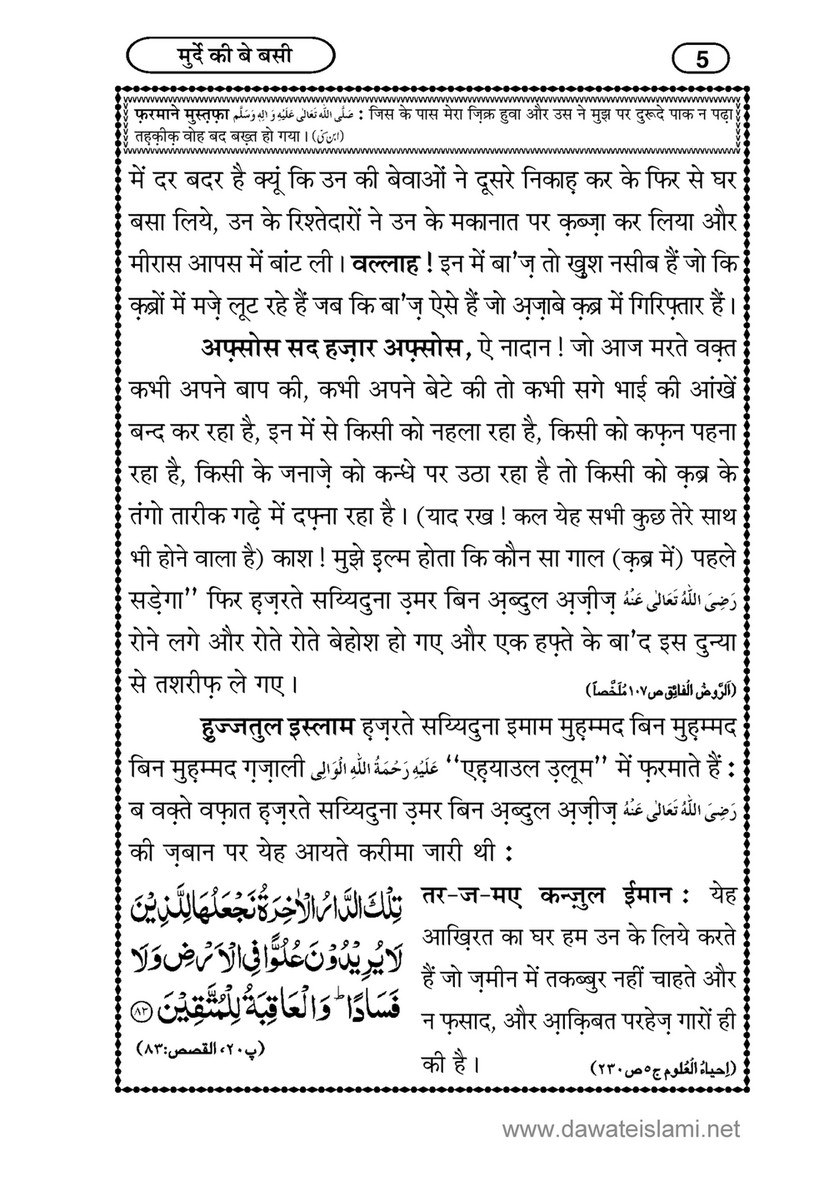 मुर्दे की बे बसी
5
फ़रमाने मुस्त़फ़ा صَلَّى اللّٰه تَعَالٰى عَلَيْهِ وَ اٰلِهٖ وَسَلَّم : जिस के पास मेरा ज़िक्र हुवा और उस ने मुझ पर दुरूदे पाक न पढ़ा
तह़क़ीक़ वोह बद बख़्त हो गया। (ابن سنی)
में दर बदर है क्यूं कि उन की बेवाओं ने दूसरे निकाह़ कर के फिर से घर
बसा लिये, उन के रिश्तेदारों ने उन के मकानात पर क़ब्ज़ा कर लिया और
मीरास आपस में बांट ली। वल्लाह ! इन में बा'ज़ तो ख़ुश नसीब हैं जो कि
क़ब्रों में मज़े लूट रहे हैं जब कि बा'ज़ ऐसे हैं जो अ़ज़ाबे क़ब्र में गिरिफ़्तार हैं।
अफ़्सोस सद हज़ार अफ़्सोस, ऐ नादान ! जो आज मरते वक़्त
कभी अपने बाप की, कभी अपने बेटे की तो कभी सगे भाई की आंखें
बन्द कर रहा है, इन में से किसी को नहला रहा है, किसी को कफ़न पहना
रहा है, किसी के जनाज़े को कन्धे पर उठा रहा है तो किसी को क़ब्र के
तंगो तारीक गढ़े में दफ़्ना रहा है। (याद रख ! कल येह सभी कुछ तेरे साथ
भी होने वाला है) काश ! मुझे इ़ल्म होता कि कौन सा गाल (क़ब्र में) पहले
सड़ेगा’’ फिर ह़ज़रते सय्यिदुना उ़मर बिन अ़ब्दुल अ़ज़ीज़ رَضِىَ اللّٰهُ تَعَالٰى عَنْهُ
रोने लगे और रोते रोते बेहोश हो गए और एक हफ़्ते के बा'द इस दुन्या
से तशरीफ़ ले गए। (اَلرَّوضُ الْفائِق ص١٠٧ مُلَخَّصاً)
ह़ुज्जतुल इस्लाम ह़ज़रते सय्यिदुना इमाम मुह़म्मद बिन मुह़म्मद
बिन मुह़म्मद ग़ज़ाली عَلَيْهِ رَحْمَةُ اللّٰهِ الْوَالِى ‘‘एह़्याउल उ़लूम’’ में फ़रमाते हैं :
ब वक़्ते वफ़ात ह़ज़रते सय्यिदुना उ़मर बिन अ़ब्दुल अ़ज़ीज़ رَضِىَ اللّٰهُ تَعَالٰى عَنْهُ
की ज़बान पर येह आयते करीमा जारी थी :
تِلْكَ الدَّارُ الْاٰخِرَةُ نَجْعَلُهَا لِلَّذِيْنَ
لَا يُرِيْدُوْنَ عُلُوًّا فِي الْاَرْضِ وَلَا
فَسَادًا ؕ وَالْعَاقِبَةُ لِلْمُتَّقِيْنَ ﴿٨٣﴾
(پ٢٠، القصص:٨٣)
तर-ज-मए कन्ज़ुल ईमान : येह
आख़िरत का घर हम उन के लिये करते
हैं जो ज़मीन में तकब्बुर नहीं चाहते और
न फ़साद, और आ़क़िबत परहेज़ गारों ही
की है। (اِحیاءُ الْعُلوم ج٥ ص٢٣٠)
www.dawateislami.net